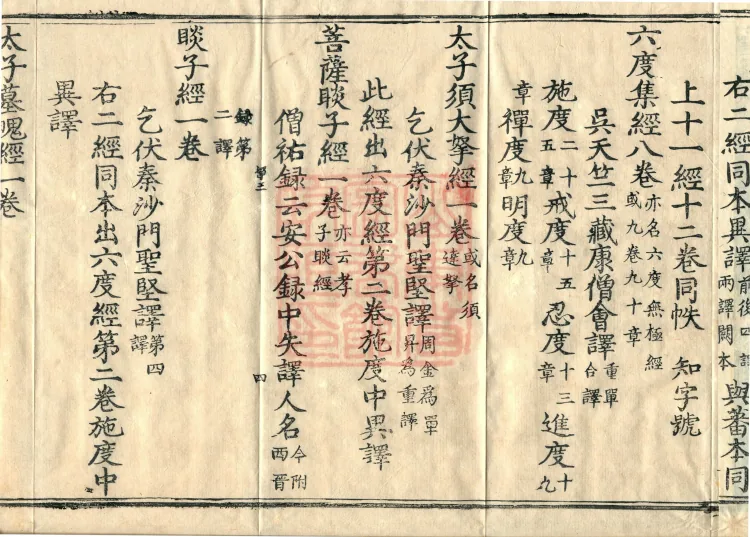 右二經同本異譯前後四譯兩譯闕本與蕃本同
上十一經十二卷同帙 知字號
六度集經八卷亦名六度無極經或九卷九十章
吳天竺三藏康僧會譯重單合譯
施度二十五章戒度十五章忍度十三章進度十九
章禪度九章明度九章
太子須大拏經一卷或名須達拏
乞伏秦沙門聖堅譯周金爲單昇爲重譯
此經出六度經第二卷施度中異譯
菩薩睒子經一卷亦云孝子睒經
僧祐録云安公録中失譯人名今附西晉
四
録第二譯
睒子經一卷
乞伏秦沙門聖堅譯第四譯
右二經同本出六度經第二卷施度中
異譯
太子墓魄經一卷